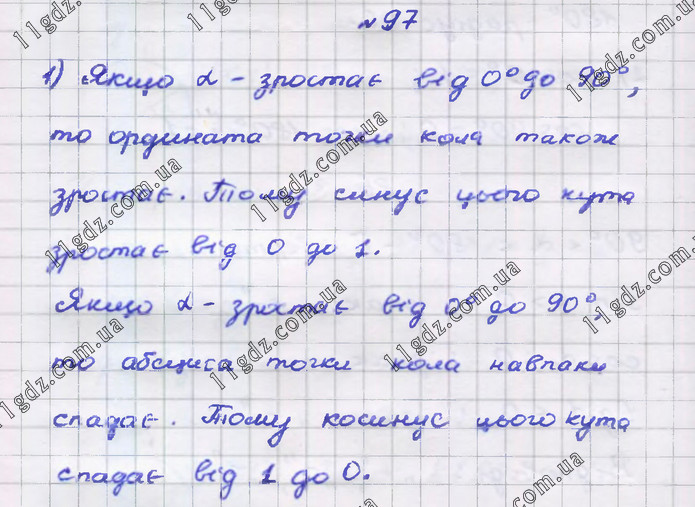 №97
1) Якщо α - зростає від 0° до 90°,
то ордината точки кола також
зростає. Тому синус цього кута
зростає від 0 до 1.
Якщо α - зростає від 0° до 90°,
то абсциса точки кола навпаки
спадає. Тому косинус цього кута
спадає від 1 до 0.
11gdz.com.ua
11gdz.com.ua
11gdz.com.ua
11gdz.com.ua
11gdz.com.ua
11gdz.com.ua
11gdz.com.ua
11gdz.com.ua
11gdz.com.ua
11gdz.com.ua